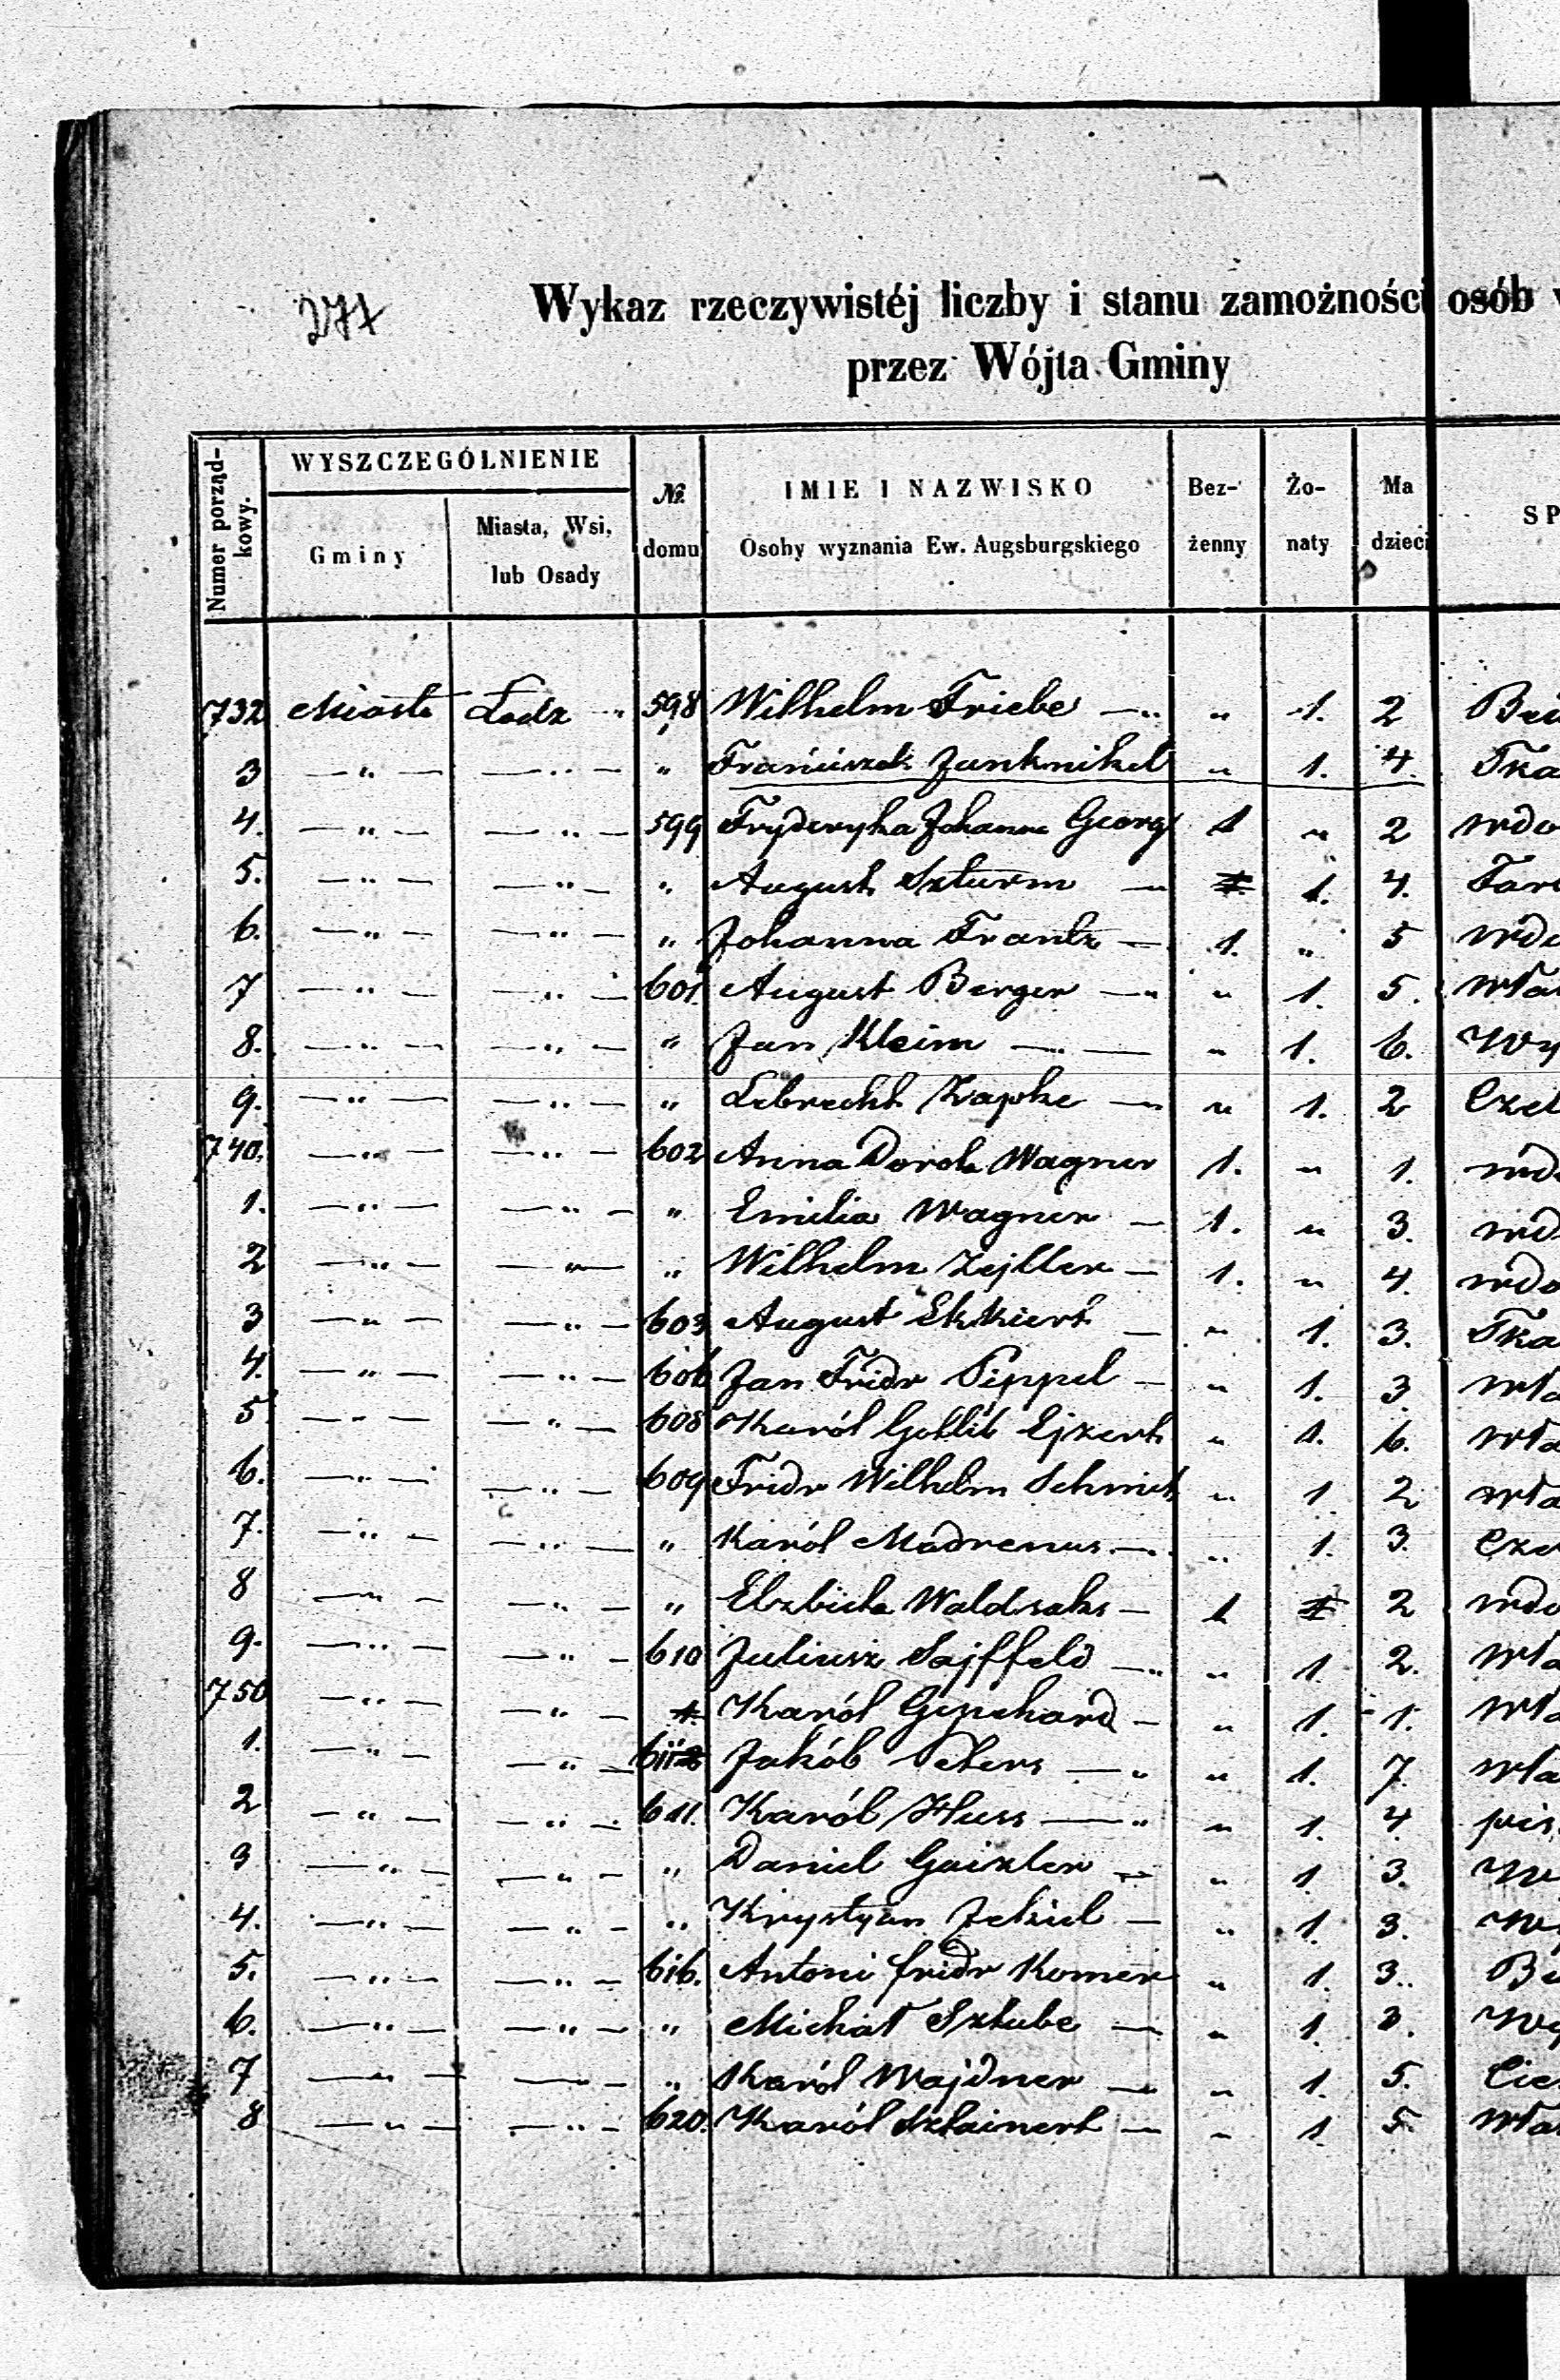 277
Wykaz rzeczywistéj liczby i stanu zamożności osób
przez Wójta Gminy
Numer porządkowy.
WYSZCZEGÓLNIENIE
Gminy
Miasta, Wsi, lub Osady
№ domu
IMIE I NAZWISKO
Osoby wyznania Ew. Augsburgskiego
Bez-żenny
Żo-naty
Ma dzieci
SP
732 Miasto Łodz „ 598 Wilhelm Friebe „ „ 1. 2
3 — „ — — „ — „ Franciszek Junknikel „ 1. 4. Tka
4. — „ — — „ — 599 Fryderyka Johanna Georg 1 „ 2 wdo
5. — „ — — „ — „ August Szturm — 1. 4. Far
6. — „ — — „ — „ Johanna Frantz — 1. „ 5 wdo
7 — „ — — „ — 601. August Berger — „ 1. 5. Wła
8. — „ — — „ — „ Jan Kleim — „ 1. 6. Wy
9. — „ — — „ — „ Lebrecht Zapke — „ 1. 2 Czel
740. — „ — — „ — 602 Anna Dorota Wagner 1. „ 1. wd
1. — „ — — „ — „ Emilia Wagner — 1. „ 3. wd
2 — „ — — „ — „ Wilhelm Zejller — 1. „ 4. wdo
3 — „ — — „ — 603 August Ekkiert — „ 1. 3. Tka
4. — „ — — „ — 606 Jan Fridr Pippel — „ 1. 3. Wła
5 — „ — — „ — 608 Karól Gottlib Ejzert „ 1. 6. Wła
6. — „ — — „ — 609 Fridr Wilhelm Schmidt „ 1. 2 Wła
7. — „ — — „ — „ Karól Madrenus — „ 1. 3.
8 — „ — — „ — „ Elzbieta Waldsaks — 1 2 wdo
9. — „ — — „ — 610 Juliusz Sajffeld — „ „ 1. 2. Wła
750 — „ — — „ — Karól Gepchard — „ 1. 1. Wła
1. — „ — — „ — Jakób Peters — „ „ 1. 7. Wła
2 — „ — — „ — 611. Karól Huss — „ „ 1. 4. pis
3 — „ — — „ — „ Daniel Gaizler — „ 1. 3. W
4. — „ — — „ — „ Krystyan Jekiel — „ 1. 3. Wy
5. — „ — — „ — 616. Antoni fridr Komer „ 1. 3.
6. — „ — — „ — „ Michał Sztube — „ 1. 3. Wy
7 — „ — — „ — „ Karól Wajdner — „ 1. 5. Cie
8 — „ — — „ — 620. Karól Sztainert — „ 1. 5. Wła